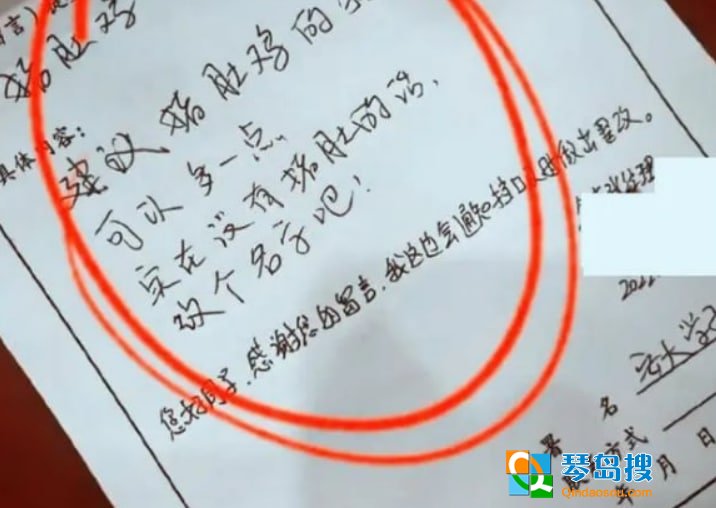 言）
猪肚鸡
具体内容：
建议猪肚鸡的
可以多一点
实在没有猪肚的话，
改个名字吧！
您好同学，感谢您的留言，我这边会通知档口及时做出整改。
经理
2022
署名
云大学
方式
年月日
琴岛搜
Qindaosou.com